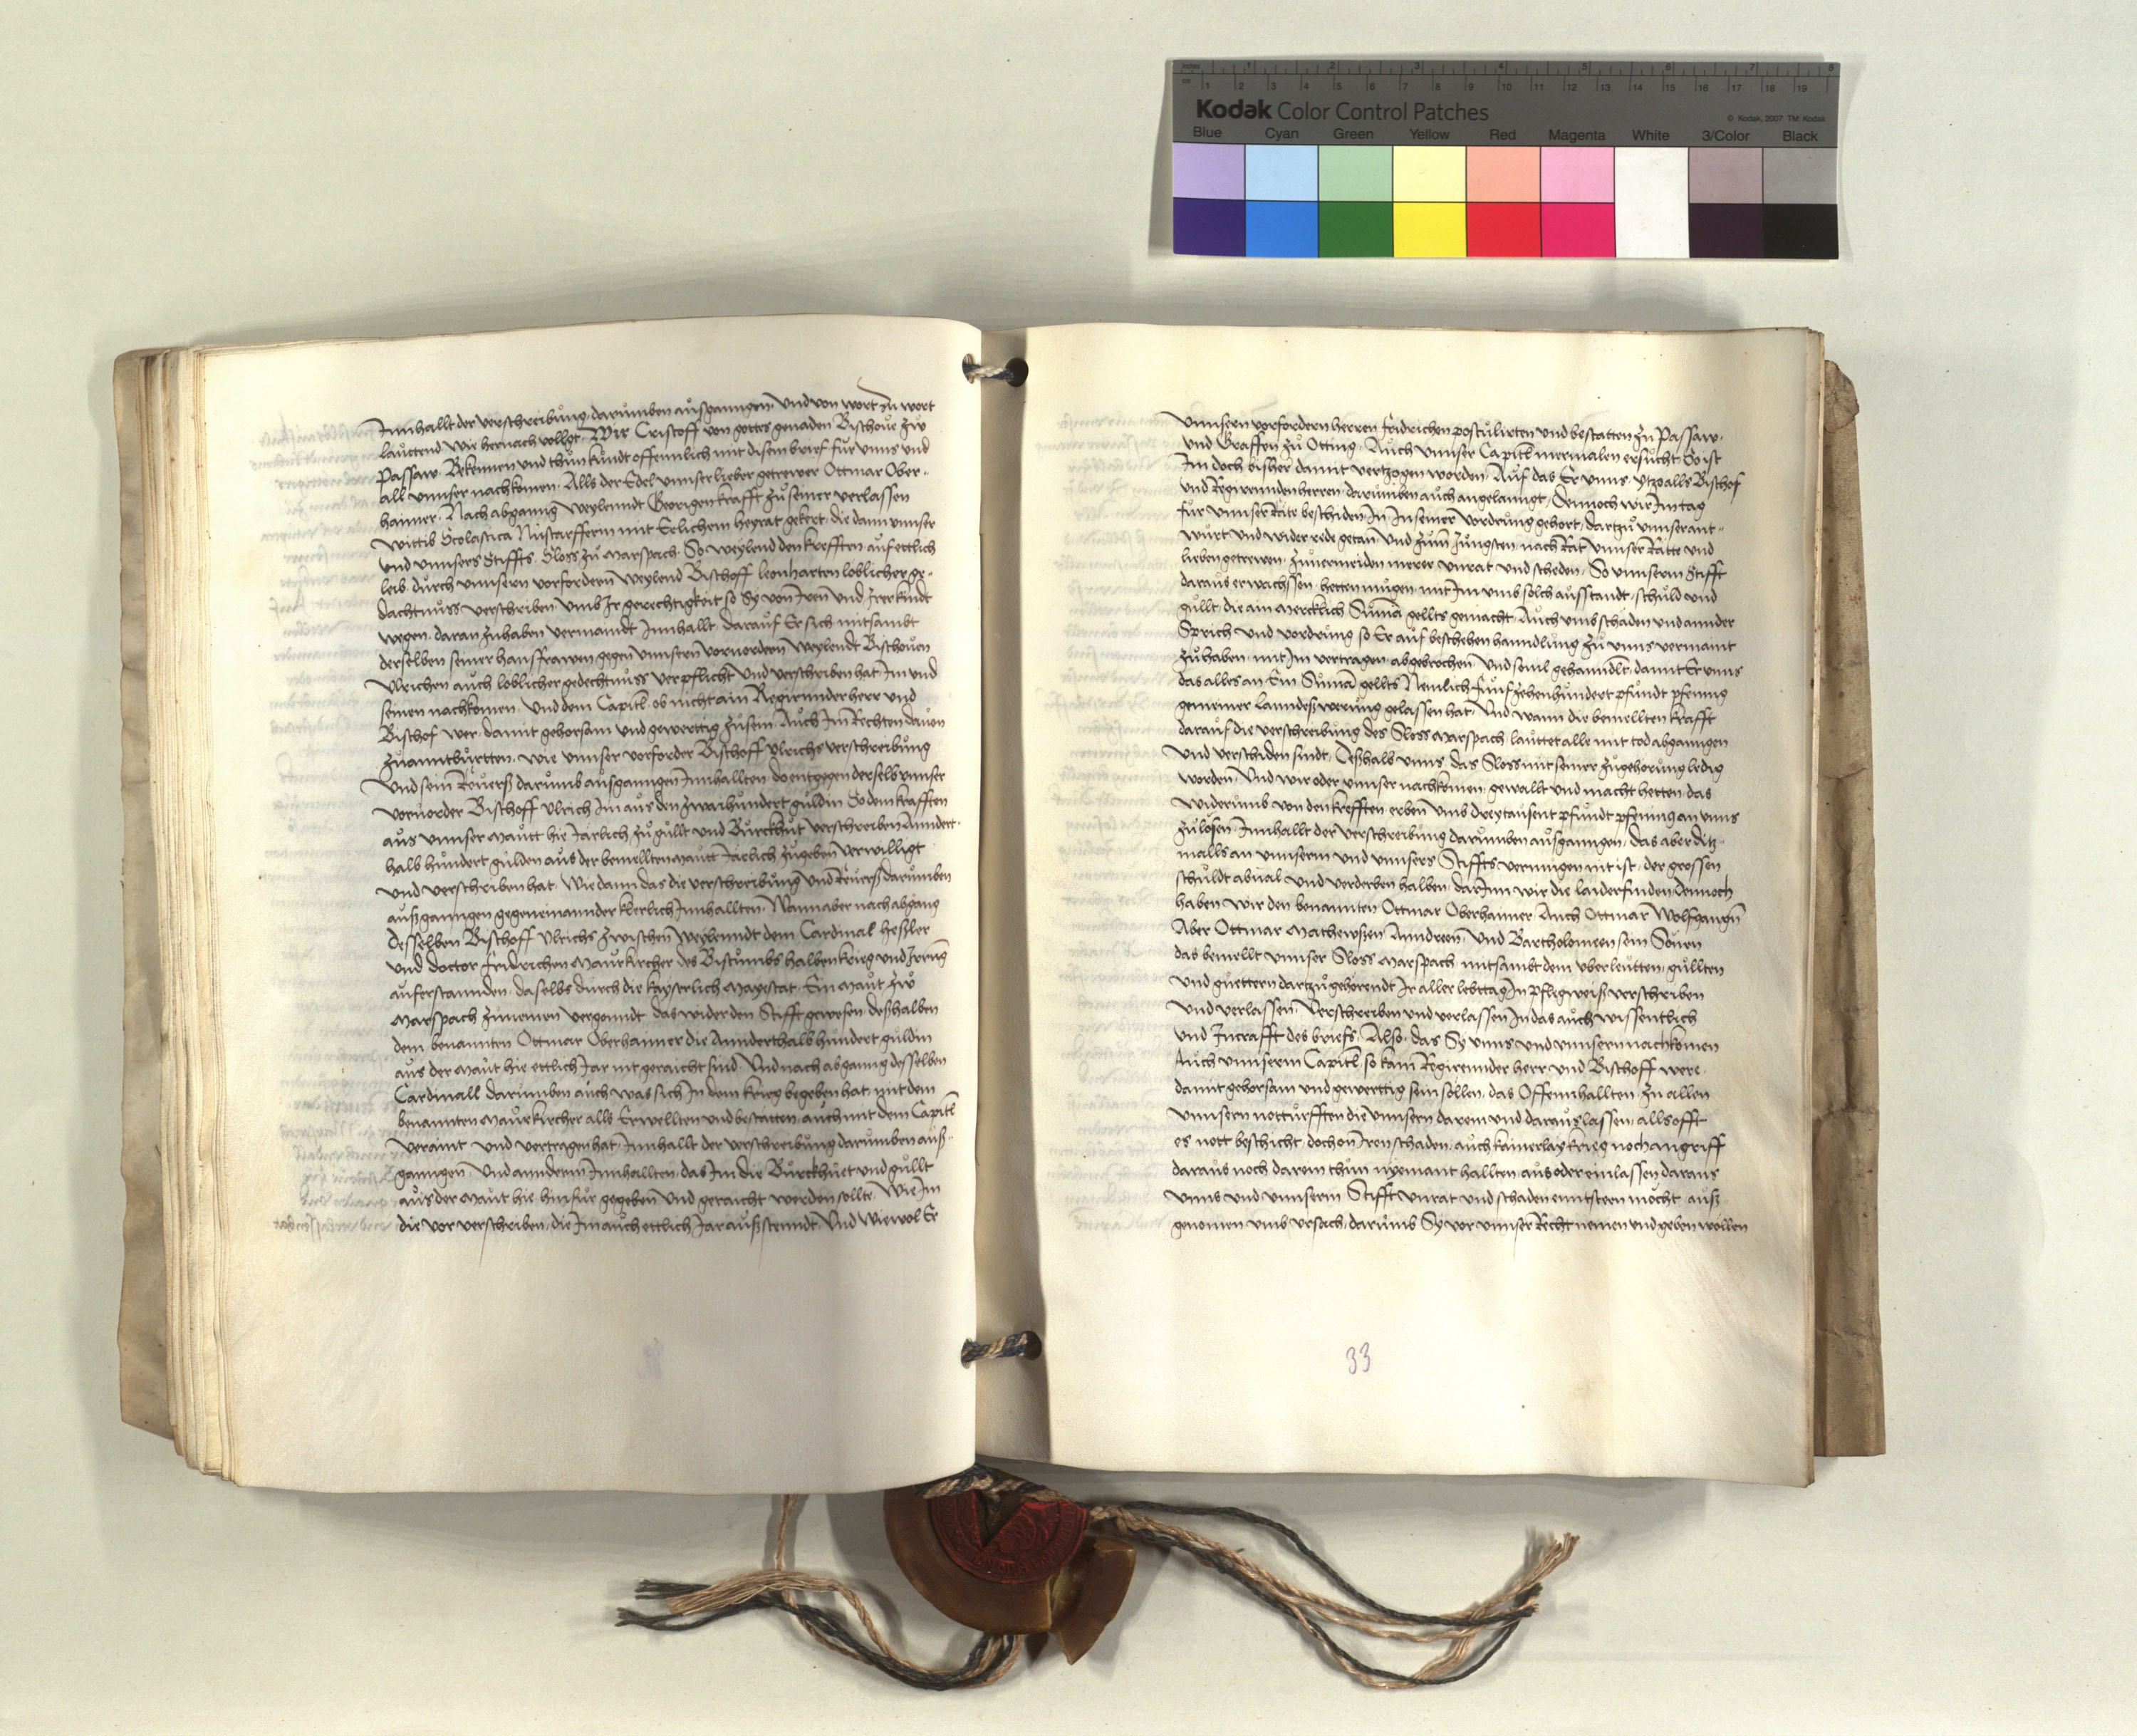 Innhallt der verschreibung darumben außganngen. Und von wort zu wort
lauttend wie hernach vollgt. Wir Cristoff von gottes genaden Bischove zw
Passaw. Bekennen und thun kundt offennlich mit disem brief für unns und
all unnser nachkomen. Alls der Edel unnser lieber getrewer Ottmar Ober-
haimer. Nach abganng weylenndt Georigen krafft zu seiner verlassen
wittib Scolastica Nustarfferin mit Erlichem heyrat gekert. die dann unnser
und unnsers Stiffts. Sloss zu Marspach. So weylend den krefften auf ettlich
leib durch unnsern vorfordern weylend Bischoff leonharten loblicher ge-
dachtnuss verschriben umb Ir gerechtigkeit so Sy von Iren und Irer kindt
wegen. daran zuhaben vermaindt Innhallt. darauf Er sich mitsambt
derselben seiner hausfrawen gegen unnsern vorvordern weylendt Bischoven
Ulrichen auch loblicher gedechtnuss verpflicht und verschriben hat Im und
seinen nachkomen. Und dem Capitl. ob nicht ain Regirnnder herr und
Bischof wer. damit gehorsam und gewerttig zu sein. Auch Im Rechten davon
zuanntburtten. wie unnser vorforder Bischoff Ulrichs verschreibung
Und sein Reverß darumb ausganngen Innhallten. do entgegen derselb unnser
vorvorder Bischoff Ulrich Im aus den zwaihundert guldin So dem krafften
aus unnser Mautt hie Jarlich zu gullt und Burckhut verschriben Anndert-
halb hundert gulden aus der bemellten mautt Jarlich zugeben verwilligt
und verschriben hat. Wie dann das die verschreibung und Reverß darumben
außganngen gegeneinannder klerlich Innhallten. Wann aber nach abgang
desselben Bischoff Ulrichs zwischen weylenndt dem Cardinal heßler
und doctor Fridrichen Maurkircher des Bistumbs halben krieg und Irrung
auferstannden. daselbs durch die kayserlich Mayestat. Ein maut zw
Marspach zunemen vergonndt. das wider den Stifft gewesen. deßhalben
dem benannten Ottmar Oberhaimer die Annderthalb hundert guldin
aus der Maut hie ettlich Jar nit geraicht sind. Und nach abganng desselben
Cardinall darumben auch was sich In dem krieg begeben hat. mit dem
benannten Maurkircher alls Erwellten und bestatten. auch mit dem Capitl
veraint und vertragen hat. Innhallt der verschreibung darumben auß-
ganngen. Und annderm Innhallten. das Im die Burckhuet und gullt
aus der Maut hie hinfur gegeben und geraicht werden sollte. Wie Im
die vor verschriben. die Im auch ettlich Jar außstenndt. Und Wiewol Er
unnsern vorfordern herren fridrichen postulirten und bestatten zu Passaw.
und Graffen zu Otting. Auch unnser Capitl mermalen ersucht. So ist
Im doch bisher damit vertzogen worden. Auf das Er unns. Ytzo alls Bischof
und Regierennden herren. darumben auch angelanngt. Dennoch wir Im tag
für unnser Räte beschiden. In In seiner vordrung gehort. dartzu unnser ant-
wurt und widerrede getan. Und zum Jungsten. nach Rat unnser Rätte und
lieben getrewen. zuvermeiden merer unrat und scheden. So unnserm Stifft
daraus erwachssen hetten mugen. mit Im umb solch ausstandt. schuld und
gullt. die ain mercklich Suma gellts gemacht. Auch umb schaden und annder
Sprüch und vordrung so Er auf beschehen hanndlung zu unns vermaint
zuhaben. mit Im vertragen. abgebrochen und sovil gehanndlt. damit Er unns
das alles an Ein Suma gellts Nemlich funfzehenhundert pfundt pfening
gemeiner lanndeßwerung gelassen hat. Und wann die bemellten krafft
darauf die verschreibung des Sloss Marspach lauttet alle mit tod abganngen
und verschaden sindt. Deßhalb unns das Sloss mit seiner zugehorung ledig
worden. Und wir oder unnser nachkomen. gewallt und macht hetten. das
widerumb von den krefften erben umb dreytausent pfundt pfening an unns
zulosen. Innhallt der verschreibung darumben außganngen. Das aber ditz-
malls an unnserm und unnsers Stiffts vermugen nit ist. der grossen
schuldt abval und verderben halben. dar Inn wir die laider finden. Dennoch
haben wir den benannten Ottmar Oberhaimer. Auch Ottmar Wolfganngen
Aber Ottmar Mathewßen Anndreen. Und Bartholomeen sein Sunen
das bemellt unnser Sloss Marspach. mitsambt dem uberleutten. gullten
und guettern dartzu gehorendt Ir aller lebttag In pflegweiß verschriben
und verlassen. Verschreiben und verlassen In das auch wissentlich
und In crafft des briefs. Also. das Sy unns und unnsern nachkomen
Auch unnserm Capitl. so kain Regirennder herr und Bischoff were.
damit gehorsam und gewerttig sein sollen. das Offennhallten. zu allen
unnsern notturfften die unnsern darein und daraus lassen. alls offt
es nott beschicht. doch on Iren schaden. auch kainerlay krieg noch angriff
daraus noch darein thun nyemant hallten. aus oder einlassen daraus
unns und unnserm Stifft unrat und schaden enntsteen mocht. auß
genomen umb ursach. darumb Sy vor unnser Recht nemen und geben wollen
33
Kodak Color Control Patches
© Kodak, 2007 TM: Kodak
Blue Cyan Green Yellow Red Magenta White 3/Color Black